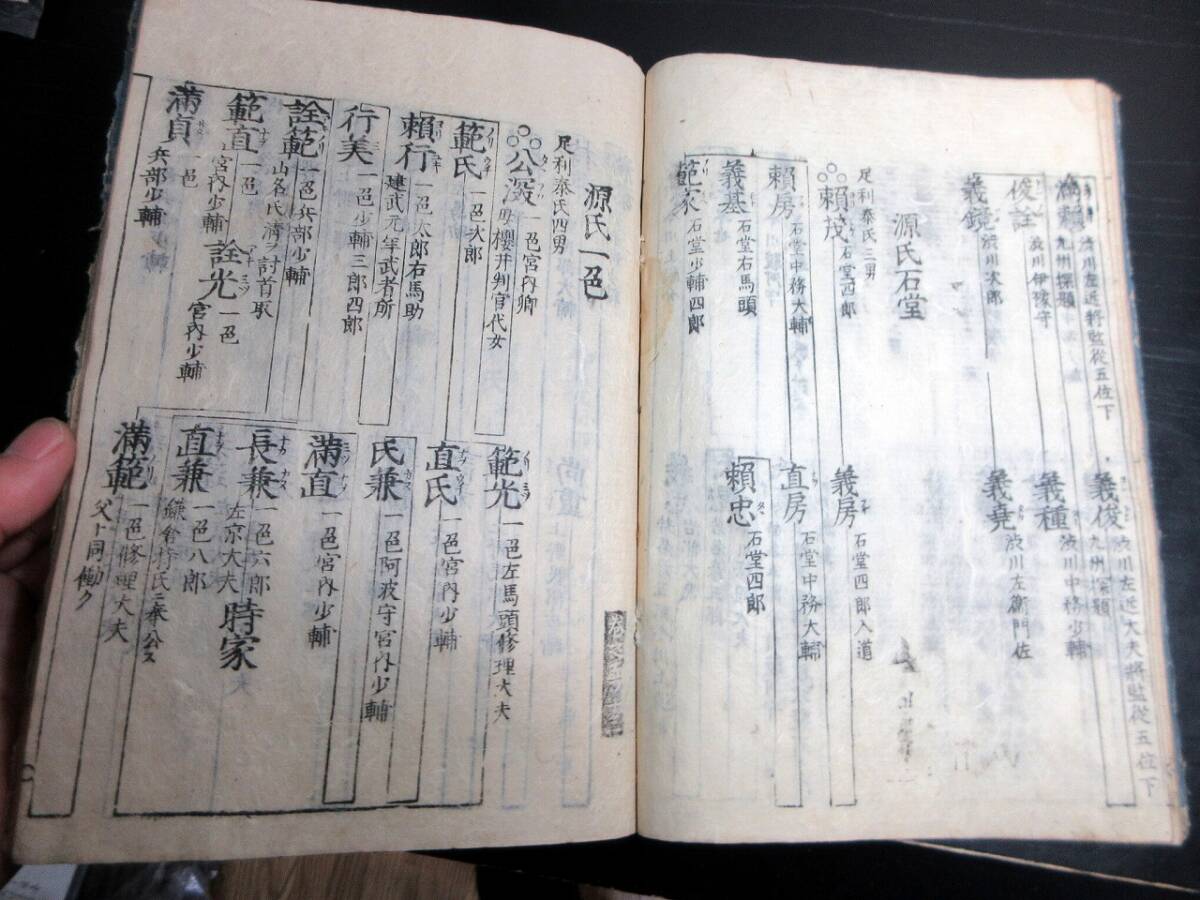 滿頼 渋川左近將監從五位下
九州探題
俊詮 渋川伊豫守
義鏡 渋川次郎
義俊 渋川左近大夫將監從五位下
九州探題
義種 渋川中務少輔
義堯 渋川左衛門佐
源氏石堂
足利泰氏三男
頼茂 石堂四郎
頼房 石堂中務大輔
義基 石堂右馬頭
範家 石堂少輔四郎
義房 石堂四郎入道
直房 石堂中務大輔
頼忠 石堂四郎
源氏一色
足利泰氏四男
公深 一邑宮内卿
母櫻井判官代女
範氏 一邑次郎
頼行 一邑太郎右馬助
建武元年武者所
行美 一邑少輔三郎四郎
詮範 一邑兵部少輔
山名氏淸ヲ討首取
範直 一邑
宮内少輔
詮光 一邑
宮内少輔
滿貞 一邑
兵部少輔
範光 一邑左馬頭修理大夫
直氏 一邑宮内少輔
氏兼 一邑阿波守宮内少輔
滿直 一邑宮内少輔
長兼 一邑六郎
左京大夫
時家
直兼 一邑八郎
鎌倉持氏ニ奉公ス
滿範 一邑修理大夫
父ト同働ク